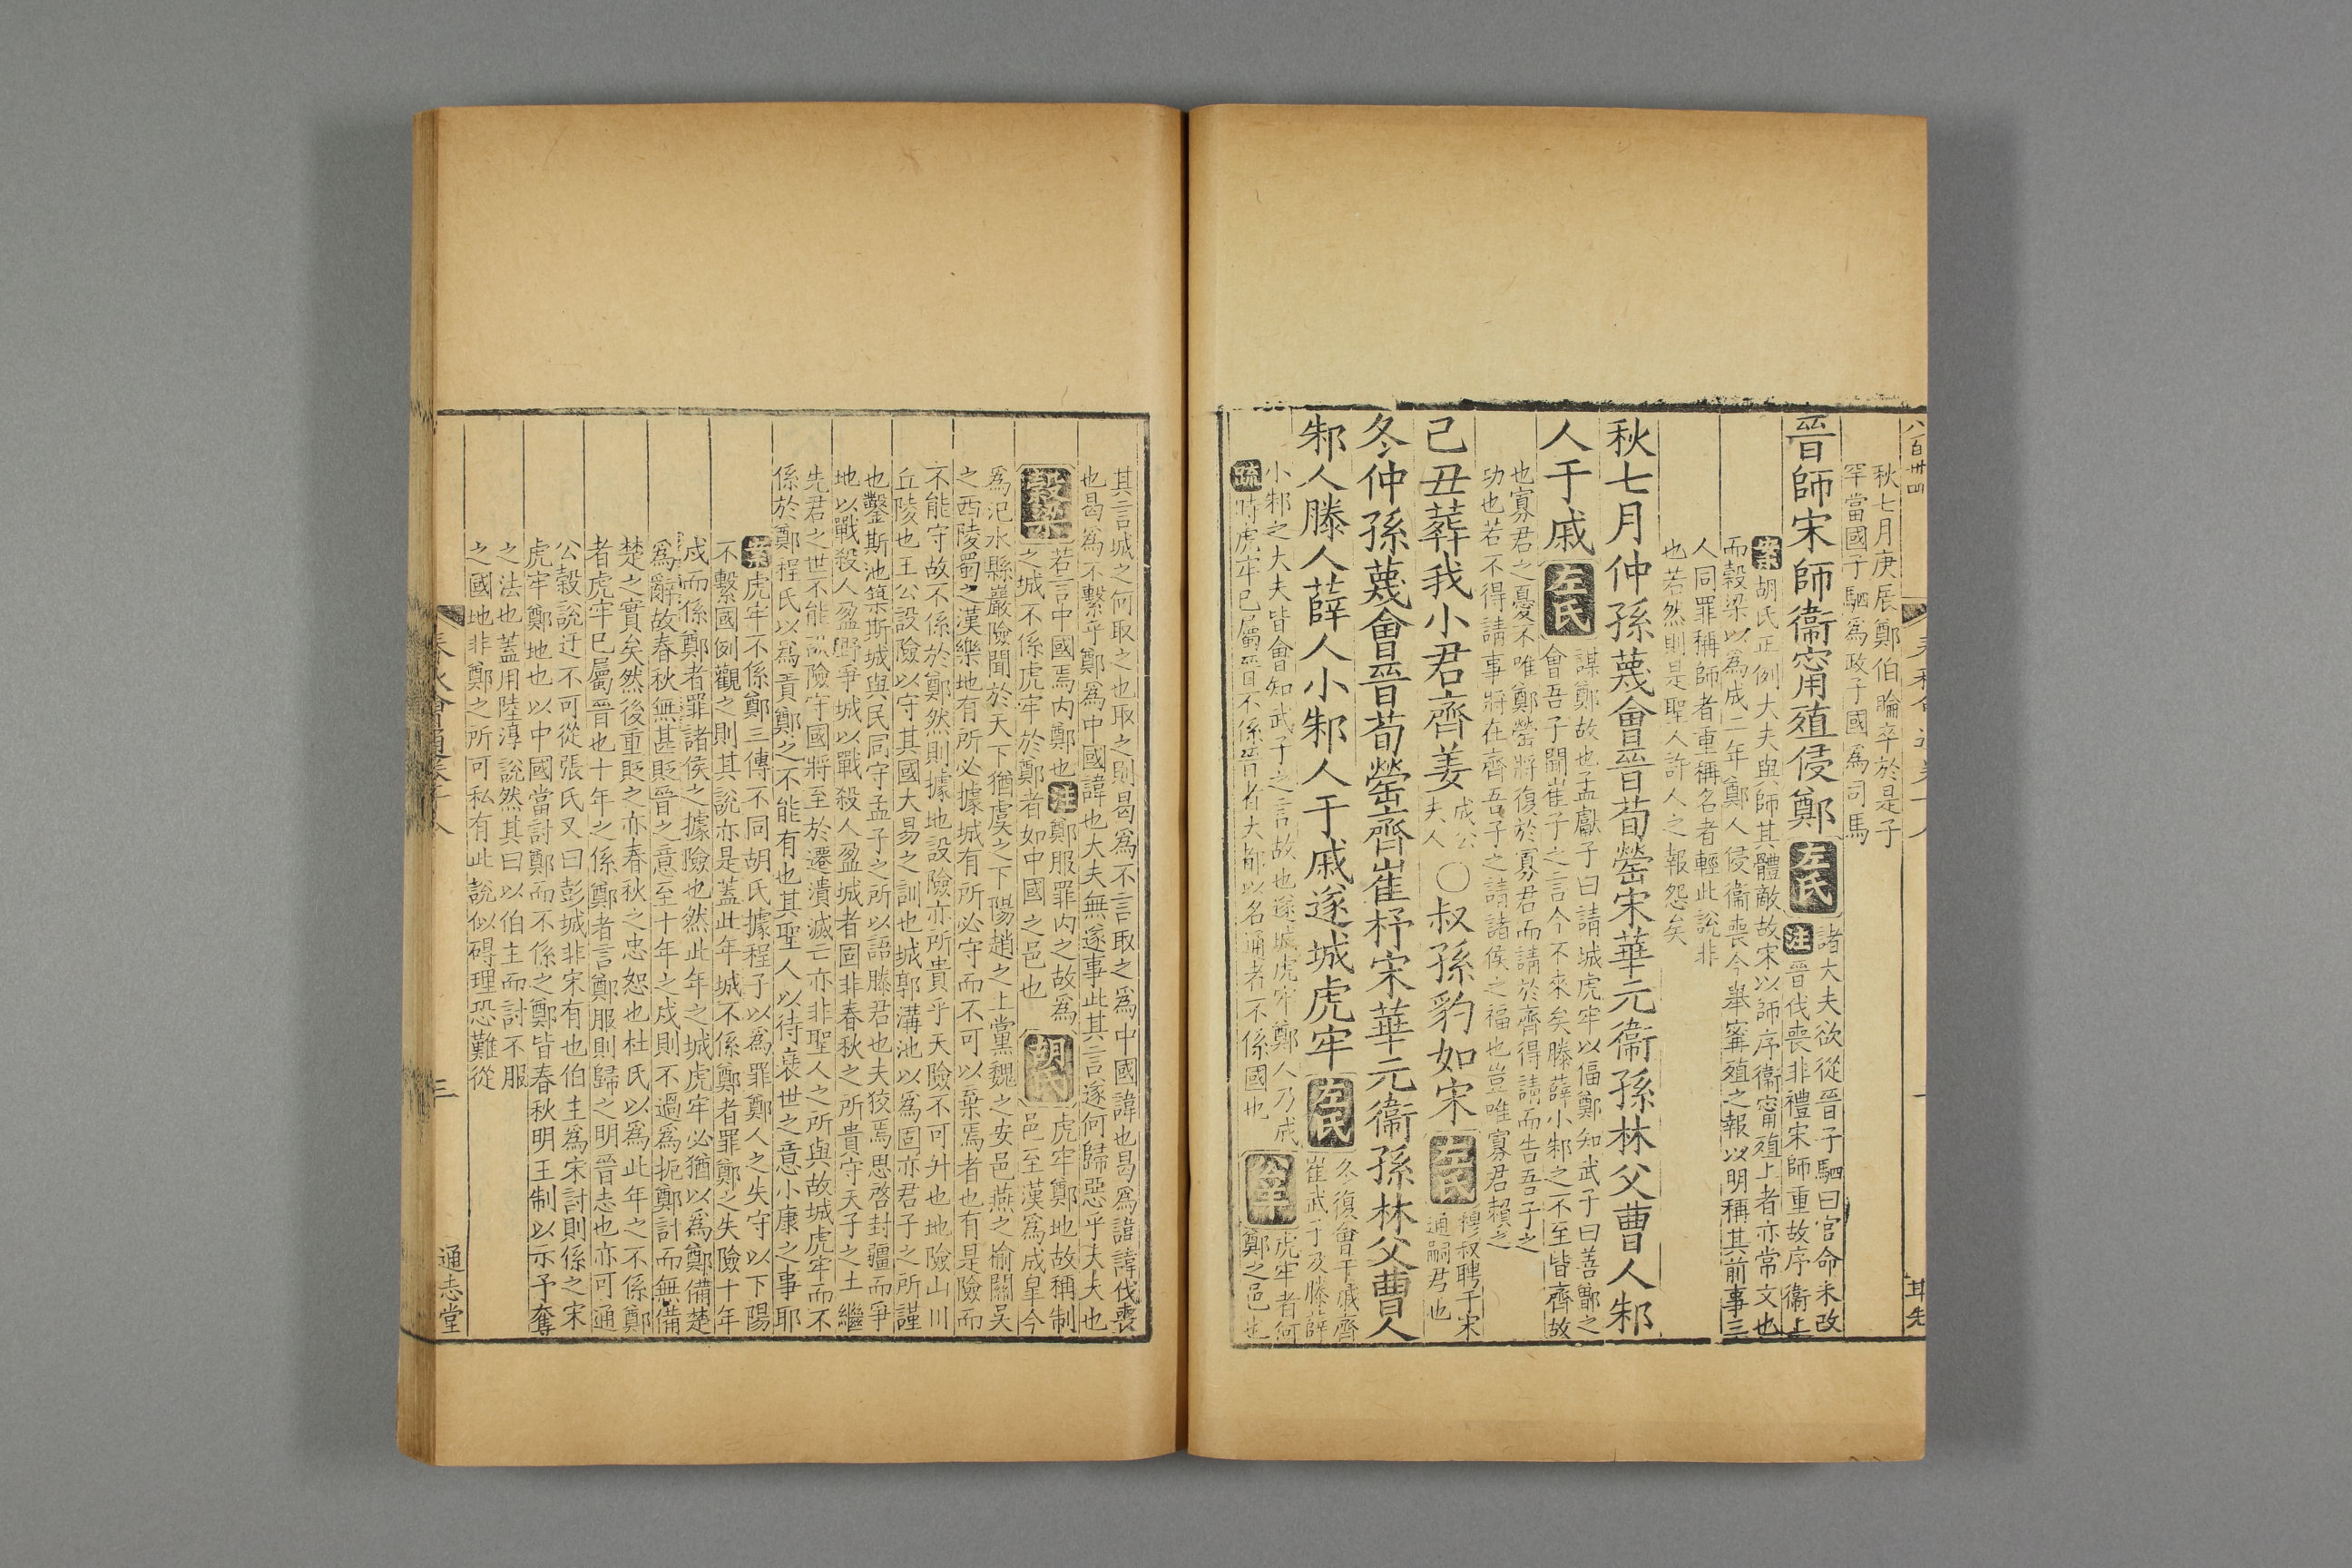 八百卅四
秋七月庚辰鄭伯睔卒於是子
罕當國子駟爲政子國爲司馬
晉師宋師衞甯殖侵鄭 左氏 諸大夫欲從晉子駟曰官命未改
注 晉伐喪非禮宋師重故序衞上
案 胡氏正例大夫與師其體敵故宋以師序衞甯殖上者亦常文也
而穀梁以爲成二年鄭人侵衞喪今舉甯殖之報以明稱其前事三
人同罪稱師者重稱名者輕此說非
也若然則是聖人許人之報怨矣
秋七月仲孫蔑會晉荀罃宋華元衞孫林父曹人邾
人于戚 左氏 謀鄭故也孟獻子曰請城虎牢以偪鄭知武子曰善鄫之
會吾子聞崔子之言今不來矣滕薛小邾之不至皆齊故
也寡君之憂不唯鄭罃將復於寡君而請於齊得請而告吾子之
功也若不得請事將在齊吾子之請諸侯之福也豈唯寡君賴之
己丑葬我小君齊姜 成公
夫人 〇叔孫豹如宋 左氏 穆叔聘于宋
通嗣君也
冬仲孫蔑會晉荀罃齊崔杼宋華元衞孫林父曹人
邾人滕人薛人小邾人于戚遂城虎牢 左氏 冬復會于戚齊
崔武子及滕薛
小邾之大夫皆會知武子之言故也遂城虎牢鄭人乃成 公羊 虎牢者何
鄭之邑也
疏 時虎牢已屬晉不係晉者大都以名通者不係國也
其言城之何取之也取之則曷爲不言取之爲中國諱也曷爲諱諱伐喪
也曷爲不繫乎鄭爲中國諱也大夫無遂事此其言遂何歸惡乎大夫也
穀梁 若言中國焉内鄭也 注 鄭服罪内之故爲
之城不係虎牢於鄭者如中國之邑也 胡氏 虎牢鄭地故稱制
邑至漢爲成皋今
爲汜水縣巖險聞於天下猶虞之下陽趙之上黨魏之安邑燕之榆關吳
之西陵蜀之漢樂地有所必據城有所必守而不可以棄焉者也有是險而
不能守故不係於鄭然則據地設險亦所貴乎天險不可升也地險山川
丘陵也王公設險以守其國大易之訓也城郭溝池以爲固亦君子之所謹
也鑿斯池築斯城與民同守孟子之所以語滕君也夫狡焉思啓封疆而爭
地以戰殺人盈野爭城以戰殺人盈城者固非春秋之所貴守天子之土繼
先君之世不能設險守國將至於遷潰滅亡亦非聖人之所與故城虎牢而不
係於鄭程氏以爲責鄭之不能有也其聖人以待衰世之意小康之事耶
案 虎牢不係鄭三傳不同胡氏據程子以爲罪鄭人之失守以下陽
不繫國例觀之則其說亦是蓋此年城不係鄭者罪鄭之失險十年
戍而係鄭者罪諸侯之據險也然此年之城虎牢必猶以爲鄭備楚
爲辭故春秋無甚貶晉之意至十年之戍則不過爲扼鄭討而無備
楚之實矣然後重貶之亦春秋之忠恕也杜氏以爲此年之不係鄭
者虎牢已屬晉也十年之係鄭者言鄭服則歸之明晉志也亦可通
公穀說迂不可從張氏又曰彭城非宋有也伯主爲宋討則係之宋
虎牢鄭地也以中國當討鄭而不係之鄭皆春秋明王制以示予奪
之法也蓋用陸淳說然其曰以伯主而討不服
之國地非鄭之所可私有此說似碍理恐難從
三
通志堂